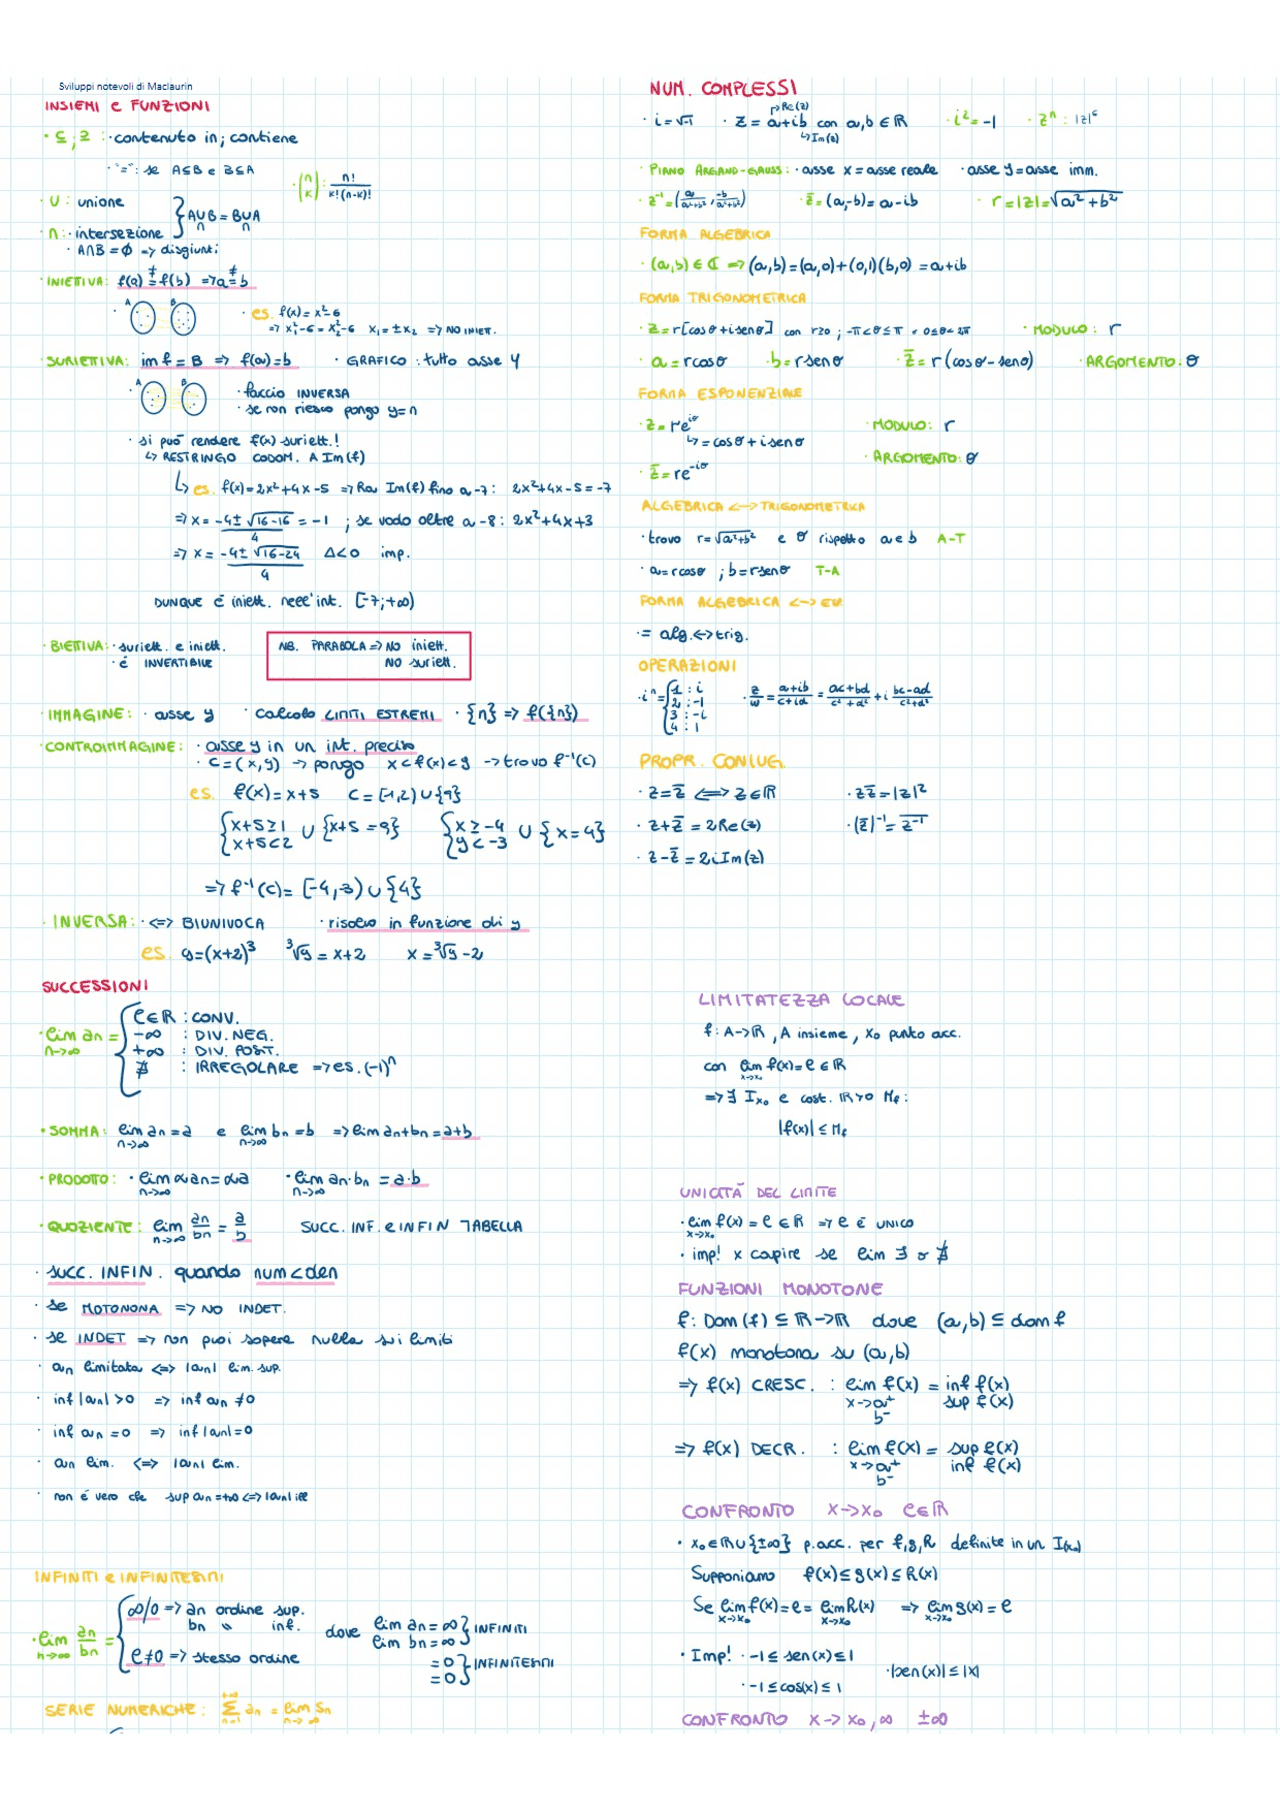 Sviluppi notevoli di Maclaurin
INSIEMI e FUNZIONI
· ⊆; ⊇ : · contenuto in; contiene
· "=": se A⊆B e B⊆A
· (n k) : n! / k!(n-k)!
· U : unione
· ∩ : · intersezione
} A∪B = B∪A
∩ ∩
· A∩B = ∅ => disgiunti
· INIETTIVA: f(a) ≠ = f(b) => a ≠ = b
A B
· es. f(x) = x²-6
=> x₁²-6 = x₂²-6 x₁ = ± x₂ => NO INIETT.
SURIETTIVA: im f = B => f(a) = b · GRAFICO : tutto asse Y
A B
· faccio INVERSA
· se non riesco pongo y = n
· si può rendere f(x) suriett.!
↳ RESTRINGO CODOM. A Im(f)
↳ es. f(x) = 2x²+4x-5 => ha Im(f) fino a -7 : 2x²+4x-5 = -7
=> x = -4±√16-16 / 4 = -1 ; se vado oltre a -8 : 2x²+4x+3
=> x = -4±√16-24 / 4 Δ<0 imp.
DUNQUE è iniett. nell'int. [-7;+∞)
· BIETTIVA: · suriett. e iniett.
· è INVERTIBILE
NB. PARABOLA => NO iniett.
NO suriett.
· IMMAGINE: · asse y · calcolo LIMITI ESTREMI · {n} => f({n})
· CONTROIMMAGINE: · asse y in un int. preciso
· C = (x,y) -> pongo x < f(x) < y -> trovo f⁻¹(c)
es. f(x) = x+5 C = [1,2) ∪ {9}
{ x+5 ≥ 1 x+5 < 2 ∪ {x+5 = 9} { x ≥ -4 y < -3 ∪ {x = 4}
=> f⁻¹(c) = [-4,-3) ∪ {4}
· INVERSA: · <=> BIUNIVOCA · risolvo in funzione di y
es. y = (x+2)³ ³√y = x+2 x = ³√y - 2
SUCCESSIONI
· lim an = n->∞ { ℓ∈ℝ : CONV.
-∞ : DIV. NEG.
+∞ : DIV. POSIT.
∄ : IRREGOLARE => es. (-1)ⁿ
· SOMMA: lim an = a e lim bn = b => lim an+bn = a+b
n->∞ n->∞
· PRODOTTO: · lim αan = αa · lim an·bn = a·b
n->∞ n->∞
· QUOZIENTE: lim n->∞ an/bn = a/b SUCC. INF. e INFIN TABELLA
· SUCC. INFIN. quando num < den
· se MOTONONA => NO INDET.
· se INDET => non puoi sapere nulla sui limiti
· an limitata <=> |an| lim. sup.
· inf |an| > 0 => inf an ≠ 0
· inf an = 0 => inf |an| = 0
· an lim. <=> |an| lim.
· non è vero che sup an = +∞ <=> |an| ill
INFINITI e INFINITESIMI
· lim n->∞ an/bn = { ∞/0 => an ordine sup.
bn " inf.
ℓ≠0 => stesso ordine
dove lim an = ∞ lim bn = ∞ } INFINITI
= 0 = 0 } INFINITESIMI
SERIE NUMERICHE : +∞ Σ n=1 an = lim n->∞ Sn
NUM. COMPLESSI
· i = √-1 · z = a+ib con a,b ∈ ℝ · i² = -1 · zⁿ :
->Re(z)
↳Im(z)
· PIANO ARGAND-GAUSS : · asse x = asse reale · asse y = asse imm.
· z⁻¹ = (a/a²+b² , -b/a²+b²) · z̄ = (a,-b) = a-ib · r = |z| = √a²+b²
FORMA ALGEBRICA
· (a,b) ∈ ℂ => (a,b) = (a,0)+(0,1)(b,0) = a+ib
FORMA TRIGONOMETRICA
· z = r[cosθ+isenθ] con r≥0 ; -π<θ≤π = 0≤θ<2π · MODULO : r
· a = rcosθ · b = rsenθ · z̄ = r(cosθ-senθ) · ARGOMENTO: θ
FORMA ESPONENZIALE
· z = re^iθ · MODULO: r
↳ = cosθ + isenθ
· ARGOMENTO: θ
· z̄ = re^-iθ
ALGEBRICA <-> TRIGONOMETRICA
· trovo r = √a²+b² e θ rispetto a e b A-T
· a = rcosθ ; b = rsenθ T-A
FORMA ALGEBRICA <->
· = alg. <-> trig.
OPERAZIONI
· iⁿ = { 1 : i
2 : -1
3 : -i
4 : 1
· z/w = a+ib/c+id = ac+bd/c²+d² + i bc-ad/c²+d²
PROPR. CONIUG.
· z = z̄ <=> z∈ℝ · zz̄ = |z|²
· z+z̄ = 2Re(z) · (z̄)⁻¹ = z⁻¹
· z-z̄ = 2iIm(z)
LIMITATEZZA LOCALE
f: A->ℝ, A insieme, x₀ punto acc.
con lim f(x) = ℓ ∈ ℝ
x->x₀
=> ∃ Ix₀ e cost. ℝ>0 Mf :
|f(x)| ≤ Mf
UNICITÀ DEL LIMITE
· lim f(x) = ℓ ∈ ℝ => ℓ è UNICO
x->x₀
· imp! x capire se lim ∃ o ∄
FUNZIONI MONOTONE
f: Dom(f) ⊆ ℝ->ℝ dove (a,b) ⊆ dom f
f(x) monotona su (a,b)
=> f(x) CRESC. : lim f(x) = inf f(x)
x->a⁺ sup f(x)
b⁻
=> f(x) DECR. : lim f(x) = sup f(x)
x->a⁺ inf f(x)
b⁻
CONFRONTO x->x₀ ℓ∈ℝ
· x₀∈ℝ∪{±∞} p.acc. per f,g,h definite in un I(x₀)
Supponiamo f(x) ≤ g(x) ≤ h(x)
Se lim f(x) = ℓ = lim h(x) => lim g(x) = ℓ
x->x₀ x->x₀ x->x₀
· Imp! · -1 ≤ sen(x) ≤ 1
· |sen(x)| ≤ |x|
· -1 ≤ cos(x) ≤ 1
CONFRONTO x->x₀,∞ ±∞